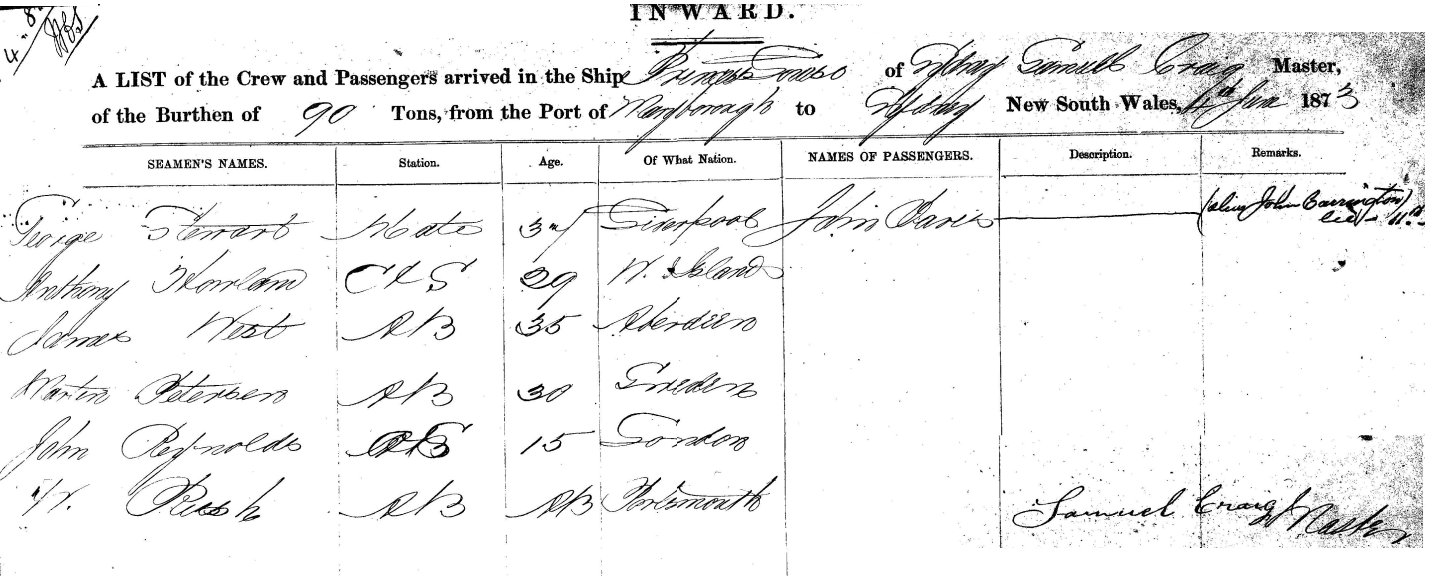 4.8.
INWARD.
A LIST of the Crew and Passengers arrived in the Ship Princess Louise of Sydney Samuel Craig Master,
of the Burthen of 90 Tons, from the Port of Maryborough to Sydney New South Wales, 4th Jan 1873
SEAMEN'S NAMES. Station. Age. Of What Nation. NAMES OF PASSENGERS. Description. Remarks.
George Stewart Mate 37 Liverpool John Davis (alias John Carrington)
Anthony C & S 29 W. Island
James West AB 35 Aberdeen
Martin Petersen AB 30 Sweden
John Reynolds 15 London
W. AB AB Portsmouth
Samuel Craig Master